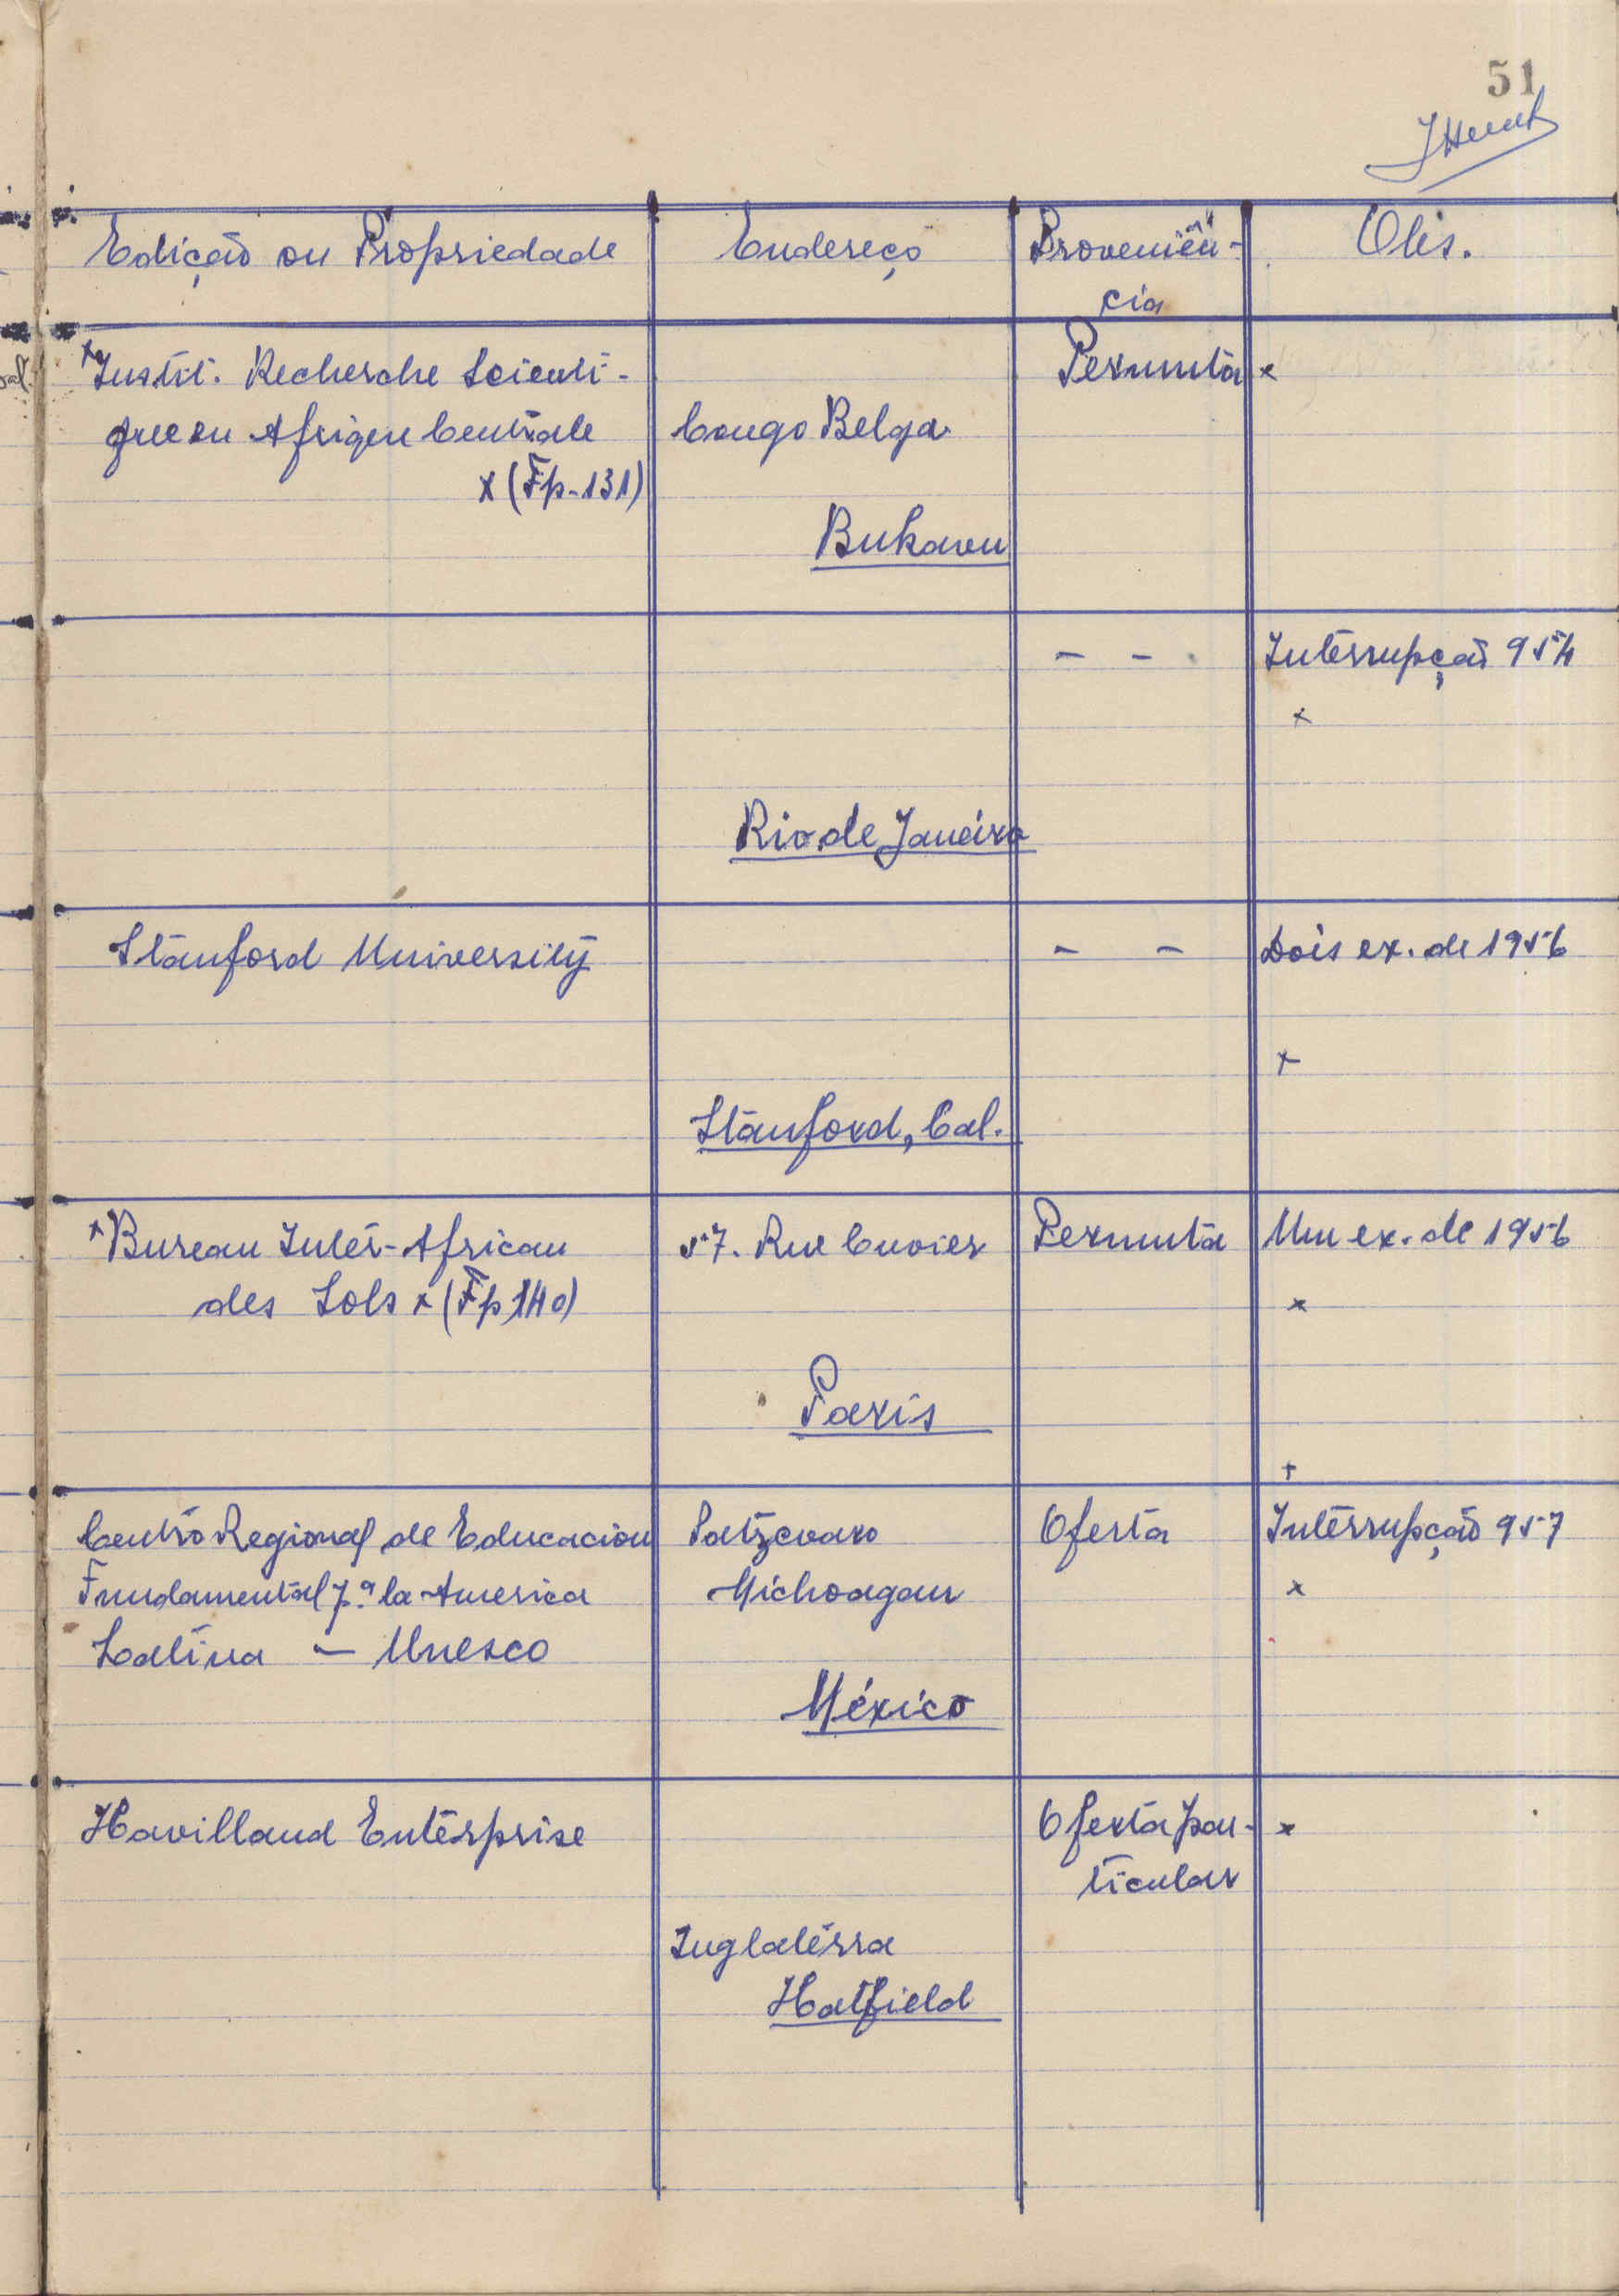 51
Edição ou Propriedade Endereço Proveniên-
cia Obs.
x Instit. Recherche Scienti- Permuta x
que en Afrique Centrale Congo Belga
x (Fp-131)
Bukavu
- - Interrupção 954
x
Rio de Janeiro
Stanford University - - Dois ex. de 1956
x
Stanford, Cal.
x Bureau Inter-African 57. Rue Cuvier Permuta Um ex. de 1956
des Sols x (Fp 140) x
Paris
+
Centro Regional de Educacion Patzcuaro Oferta Interrupção 957
Fundamental p.ª la America Michoagan x
Latina - Unesco
México
Havilland Enterprise Oferta par- x
ticular
Inglaterra
Hatfield